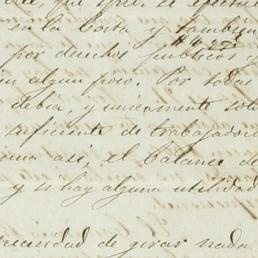 en la Costa y tambien
por derechos publicos y
en algun pais. Por todas
debia, y unicamente solo
suficiente de trabajadores
asi, el balance de
y si hay alguna utilidad
necesidad de girar nada